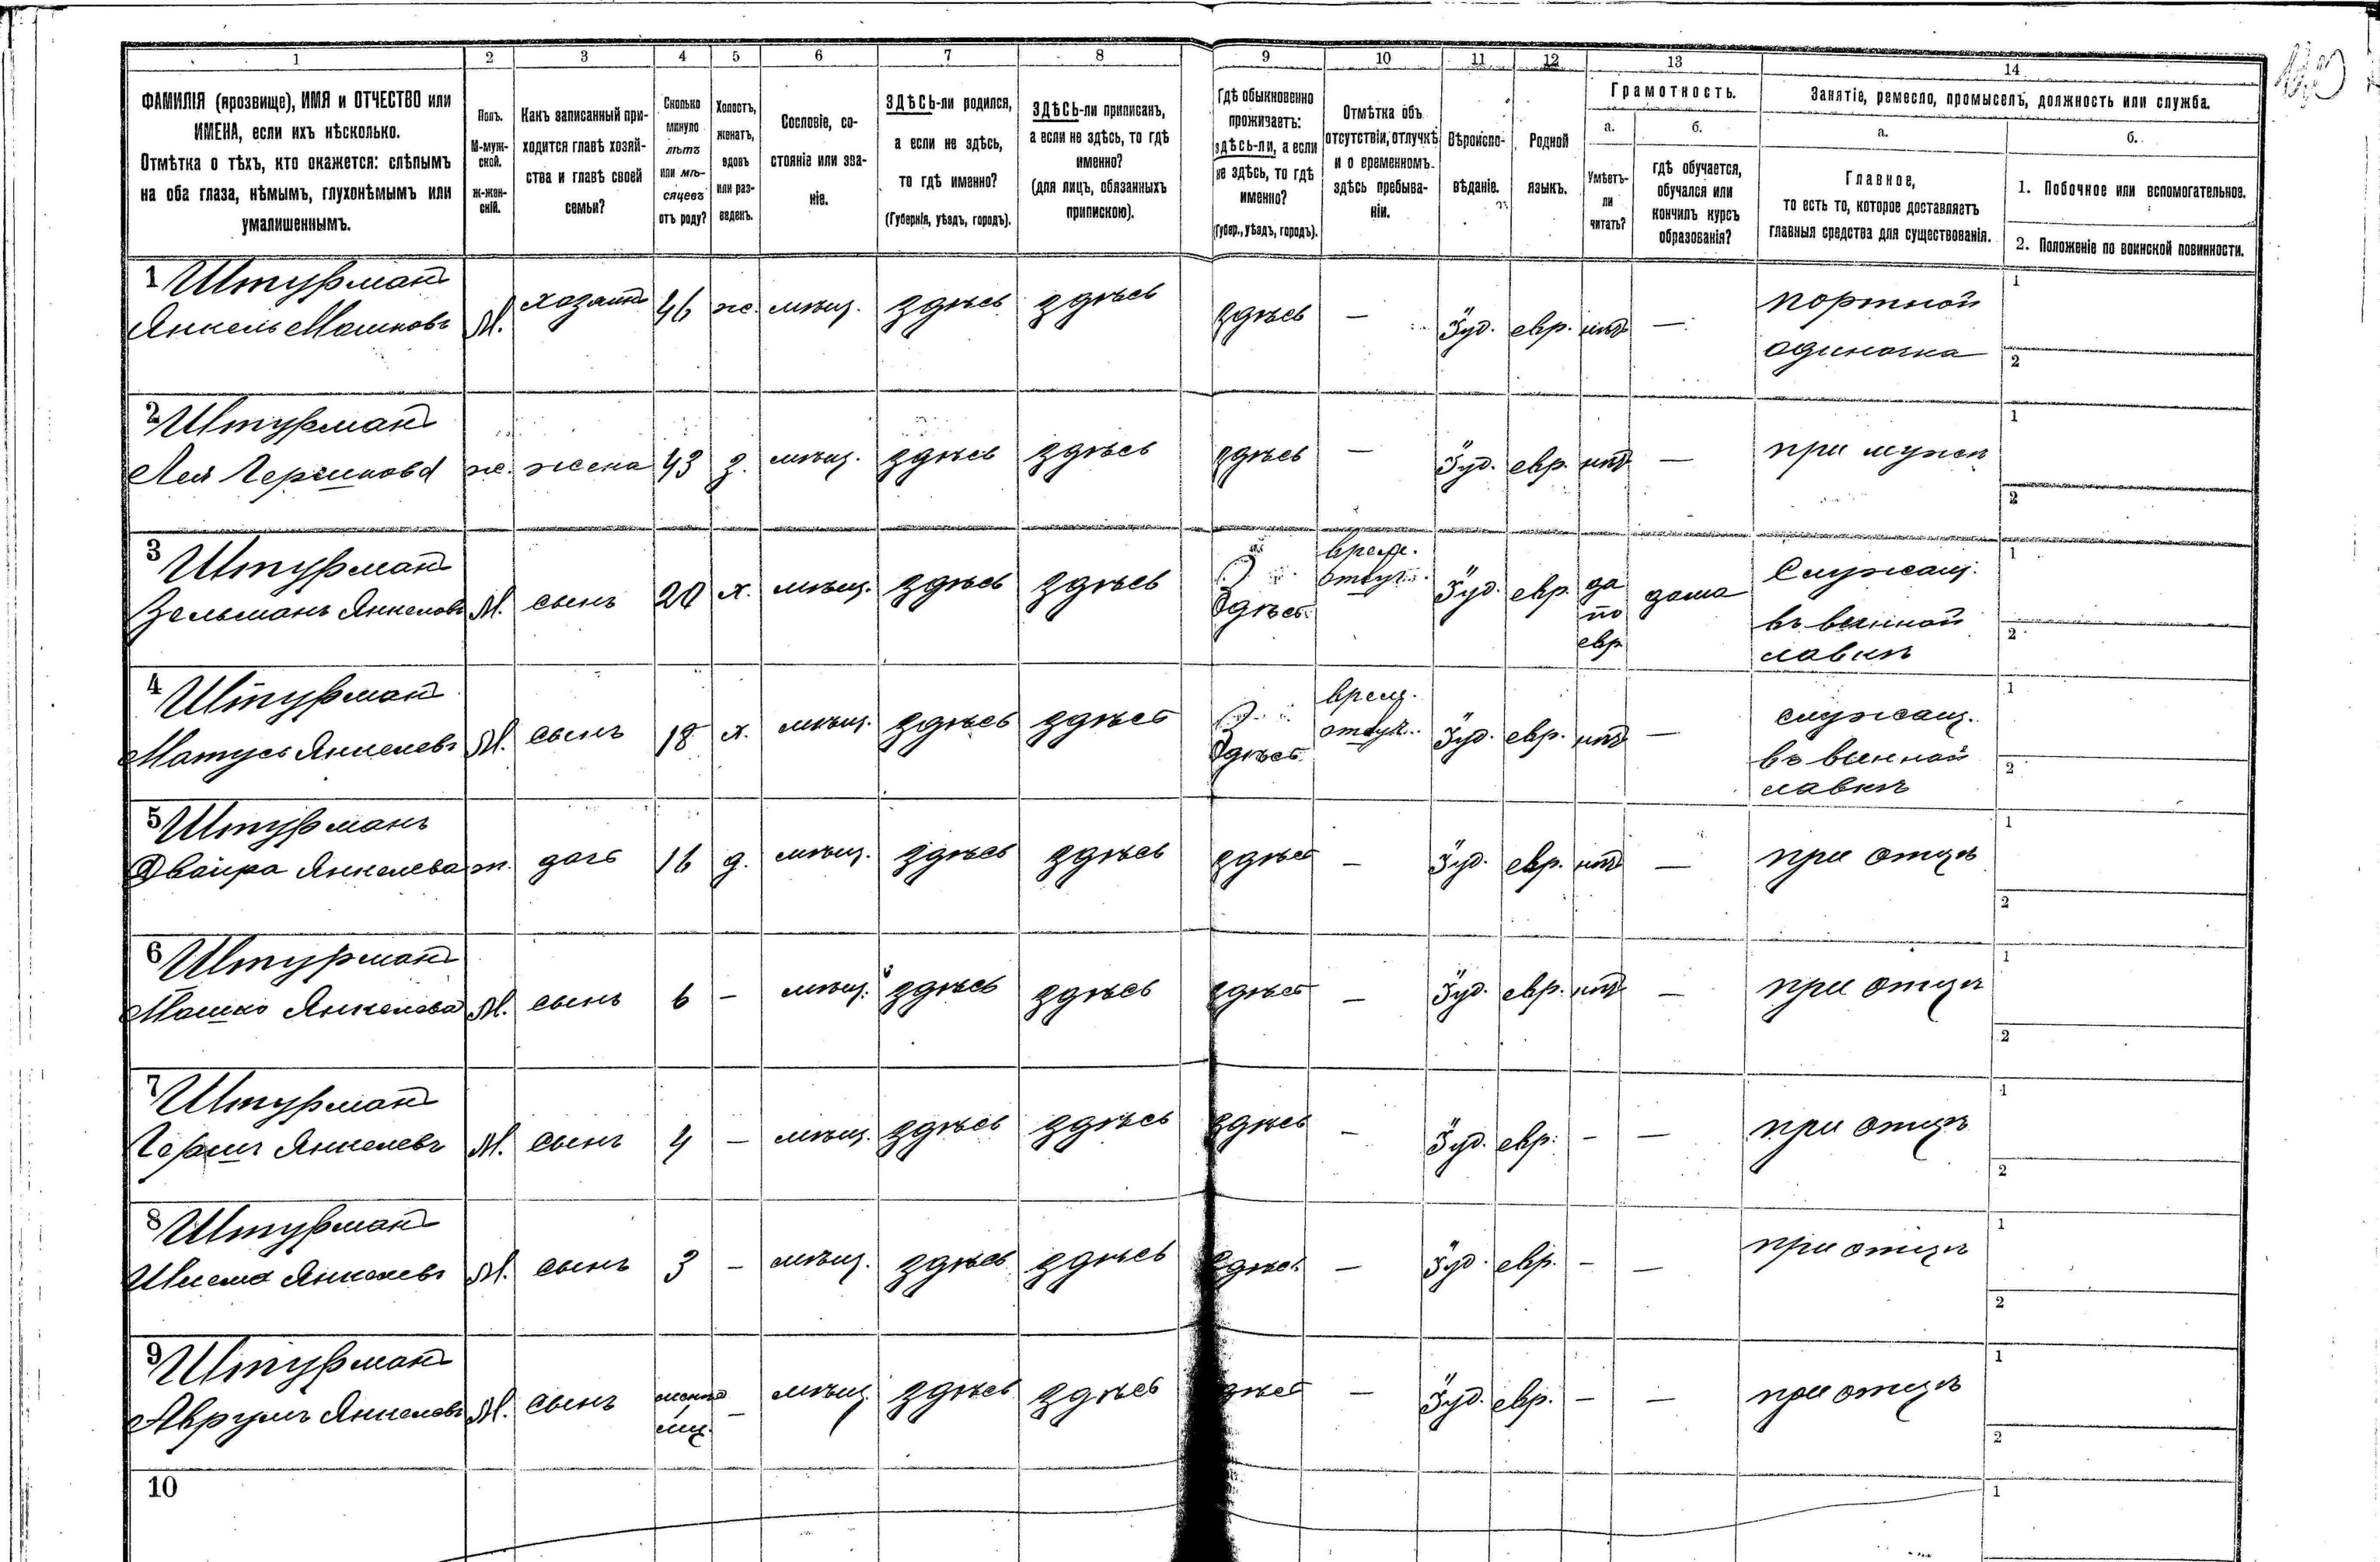 1 2 3 4 5 6 7 8 9 10 11 12 13 14
ФАМИЛІЯ (прозвище), ИМЯ и ОТЧЕСТВО или
ИМЕНА, если ихъ нѣсколько.
Отмѣтка о тѣхъ, кто окажется: слѣпымъ
на оба глаза, нѣмымъ, глухонѣмымъ или
умалишеннымъ.
Полъ.
М-муж-
ской.
Ж-жен-
скій.
Какъ записанный при-
ходится главѣ хозяй-
ства и главѣ своей
семьи?
Сколько
минуло
лѣтъ
или мѣ-
сяцевъ
отъ роду?
Холостъ,
женатъ,
вдовъ
или раз-
веденъ.
Сословіе, со-
стояніе или зва-
ніе.
ЗДѢСЬ-ли родился,
а если не здѣсь,
то гдѣ именно?
(Губернія, уѣздъ, городъ).
ЗДѢСЬ-ли приписанъ,
а если не здѣсь, то гдѣ
именно?
(для лицъ, обязанныхъ
припискою).
Гдѣ обыкновенно
проживаетъ:
здѣсь-ли, а если
не здѣсь, то гдѣ
именно?
(Губер., уѣздъ, городъ).
Отмѣтка объ
отсутствіи, отлучкѣ
и о временномъ
здѣсь пребыва-
ніи.
Вѣроиспо-
вѣданіе.
Родной
языкъ.
Грамотность.
а.
Умѣетъ-
ли
читать?
б.
гдѣ обучается,
обучался или
кончилъ курсъ
образованія?
Занятіе, ремесло, промыселъ, должность или служба.
а.
Главное,
то есть то, которое доставляетъ
главныя средства для существованія.
б.
1. Побочное или вспомогательное.
2. Положеніе по воинской повинности.
1 Штурманъ
Янкель Мошковъ М. хозяинъ 46 ж. мѣщ. здѣсь здѣсь здѣсь — Іуд. евр. нѣтъ — портной
одиночка
1
2
2 Штурманъ
Лея Гершкова ж. жена 43 з. мѣщ. здѣсь здѣсь здѣсь — Іуд. евр. нѣтъ — при мужѣ
1
2
3 Штурманъ
Зельманъ Янкелевъ М. сынъ 20 х. мѣщ. здѣсь здѣсь здѣсь врем.
отлуч. Іуд. евр. да
по
евр. дома Служащ.
въ винной
лавкѣ
1
2
4 Штурманъ
Матусъ Янкелевъ М. сынъ 18 х. мѣщ. здѣсь здѣсь здѣсь врем.
отлуч. Іуд. евр. нѣтъ — служащ.
въ винной
лавкѣ
1
2
5 Штурманъ
Двойра Янкелева ж. дочь 16 д. мѣщ. здѣсь здѣсь здѣсь — Іуд. евр. нѣтъ — при отцѣ
1
2
6 Штурманъ
Мошко Янкелевъ М. сынъ 6 — мѣщ. здѣсь здѣсь здѣсь — Іуд. евр. нѣтъ — при отцѣ
1
2
7 Штурманъ
Гершъ Янкелевъ М. сынъ 4 — мѣщ. здѣсь здѣсь здѣсь — Іуд. евр. — — при отцѣ
1
2
8 Штурманъ
Янкелевъ М. сынъ 3 — мѣщ. здѣсь здѣсь здѣсь — Іуд. евр. — — при отцѣ
1
2
9 Штурманъ
Аврумъ Янкелевъ М. сынъ — мѣщ. здѣсь здѣсь здѣсь — Іуд. евр. — — при отцѣ
1
2
10
1